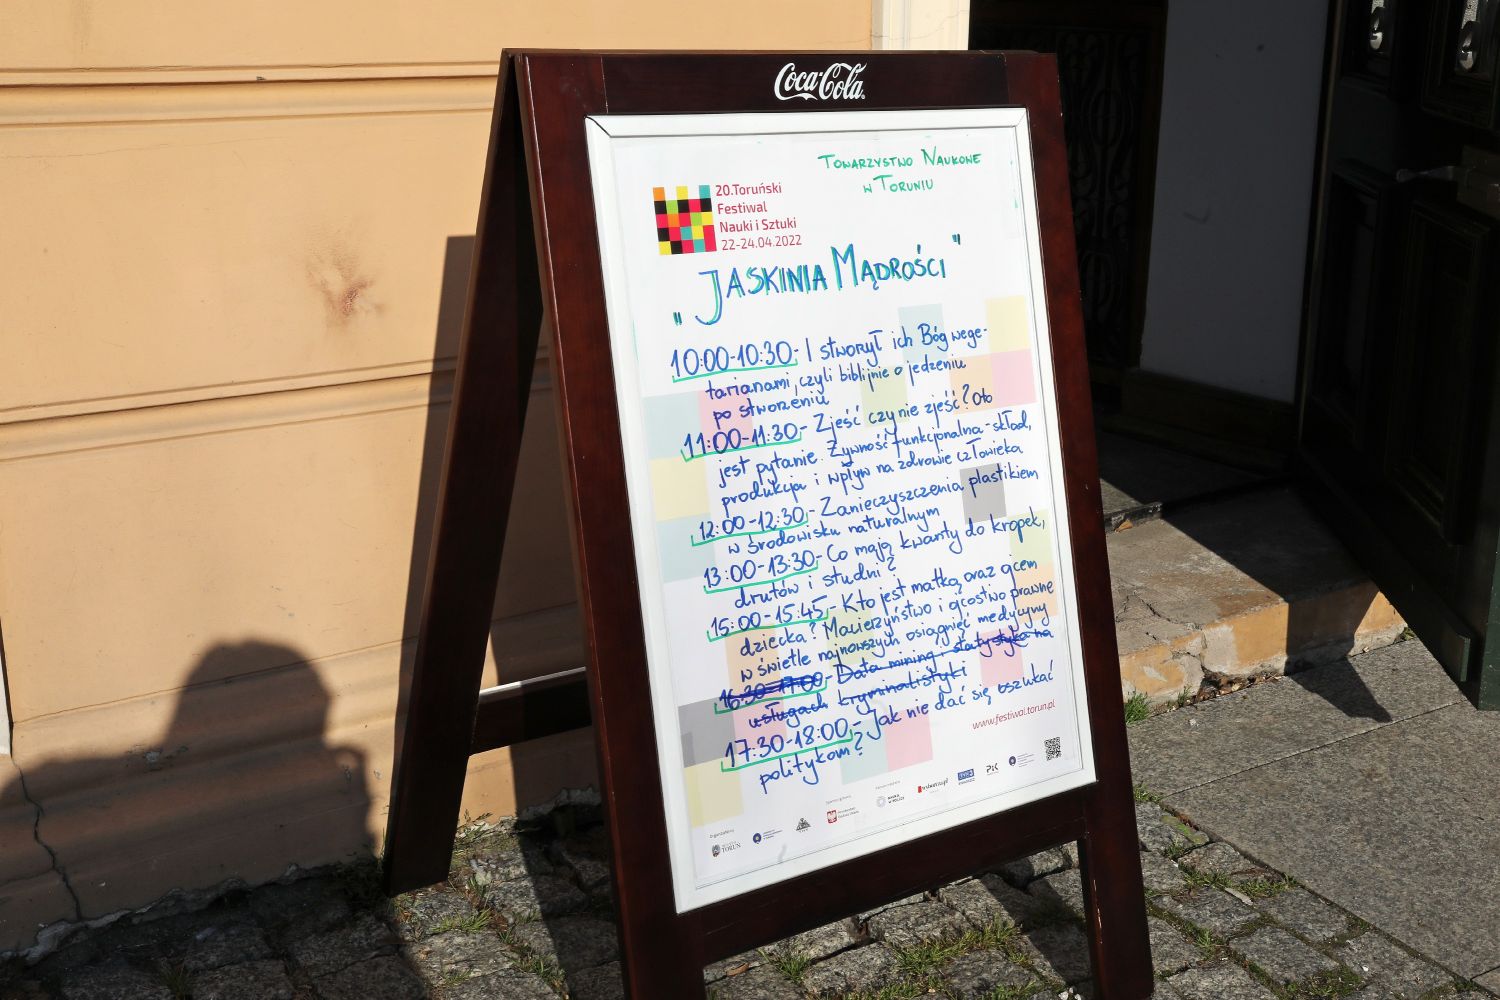 Coca-Cola
TOWARZYSTWO NAUKOWE
W TORUNIU
20.Toruński
Festiwal
Nauki i Sztuki
22-24.04.2022
„JASKINIA MĄDROŚCI"
10:00-10:30- I stworzył ich Bóg wege-
tarianami, czyli biblijnie o jedzeniu
po stworzeniu
11:00-11:30- Zjeść czy nie zjeść? Oto
jest pytanie. Żywność funkcjonalna-skład,
produkcja i wpływ na zdrowie człowieka
12:00-12:30- Zanieczyszczenia plastikiem
w środowisku naturalnym
13:00-13:30- Co mają kwanty do kropek,
drutów i studni?
15:00-15:45- Kto jest matką oraz ojcem
dziecka? Macierzyństwo i ojcostwo prawne
w świetle najnowszych osiągnięć medycyny
16:30-17:00- Data mining i statystyka na
usługach kryminalistyki
17:30-18:00- Jak nie dać się oszukać
politykom?
www.festiwal.torun.pl
TORUŃ